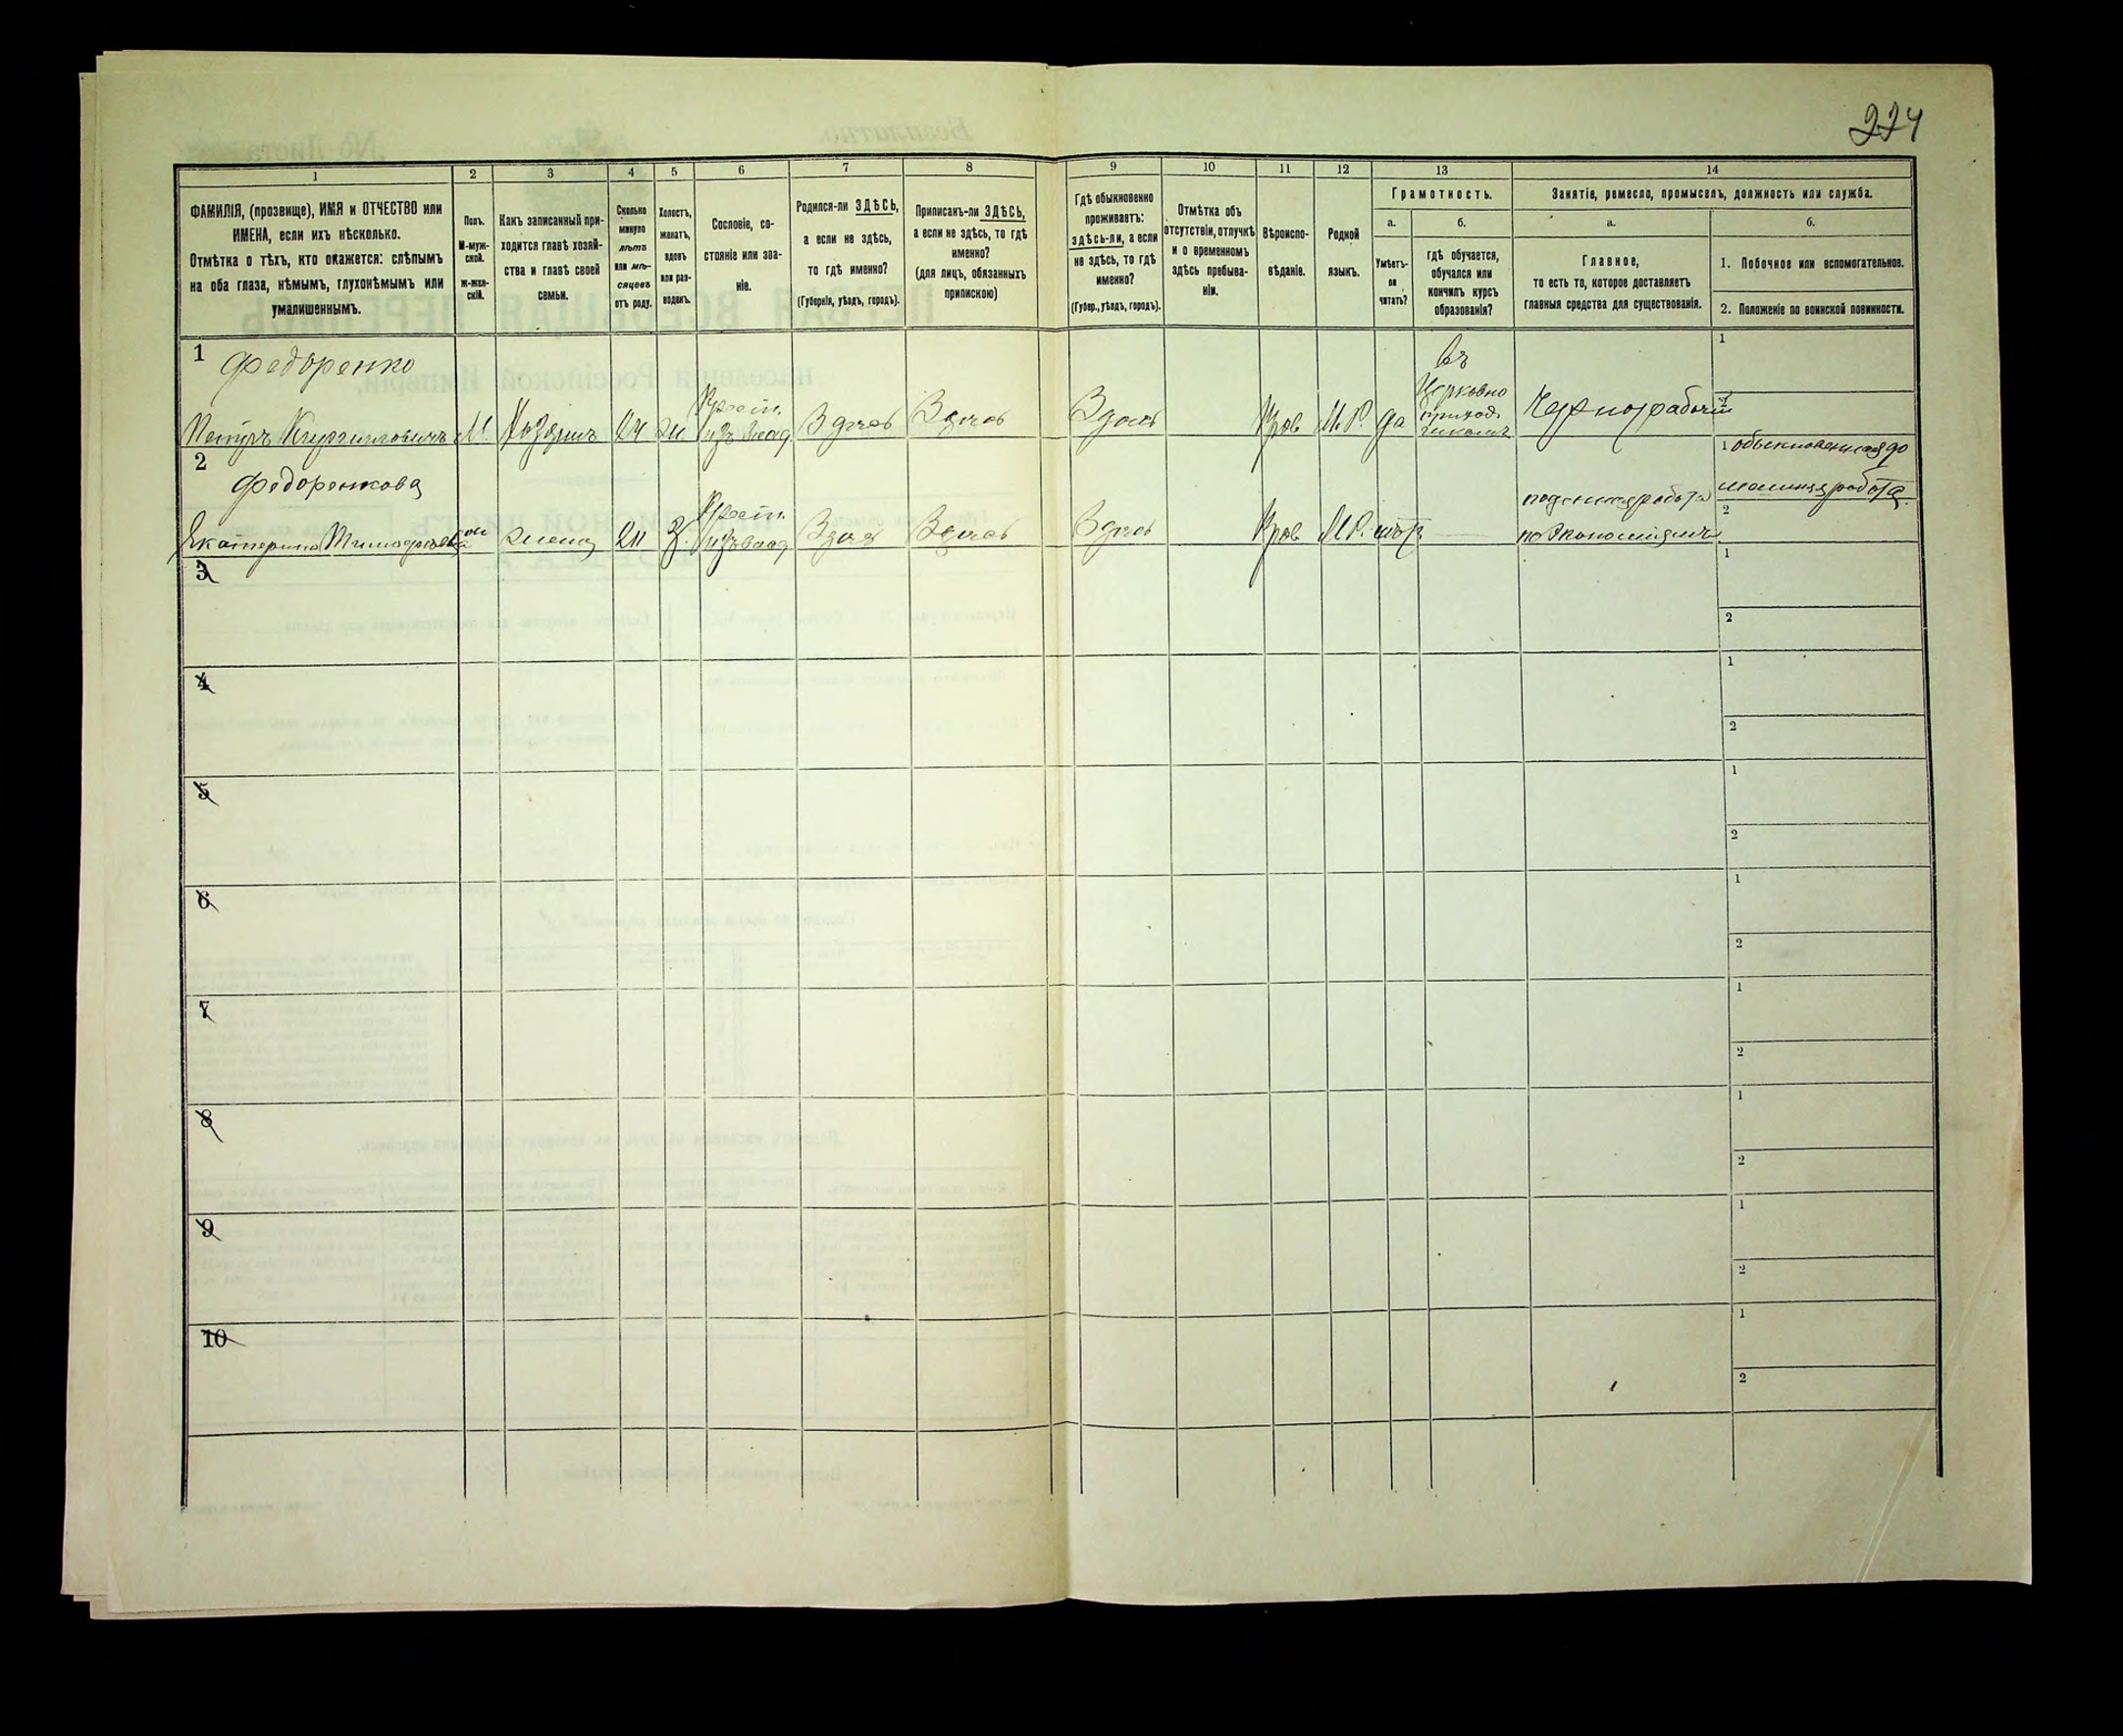 224
1
2
3
4
5
6
7
8
9
10
11
12
13
14
ФАМИЛІЯ, (прозвище), ИМЯ и ОТЧЕСТВО или
ИМЕНА, если ихъ нѣсколько.
Отмѣтка о тѣхъ, кто окажется: слѣпымъ
на оба глаза, нѣмымъ, глухонѣмымъ или
умалишеннымъ.
Полъ.
М-муж-
ской.
Ж-жен-
скій.
Какъ записанный при-
ходится главѣ хозяй-
ства и главѣ своей
семьи.
Сколько
минуло
лѣтъ
или мѣ-
сяцевъ
отъ роду.
Холостъ,
женатъ,
вдовъ
или раз-
веденъ.
Сословіе, со-
стояніе или зва-
ніе.
Родился-ли ЗДѢСЬ,
а если не здѣсь,
то гдѣ именно?
(Губернія, уѣздъ, городъ).
Приписанъ-ли ЗДѢСЬ,
а если не здѣсь, то гдѣ
именно?
(для лицъ, обязанныхъ
припискою)
Гдѣ обыкновенно
проживаетъ:
здѣсь-ли, а если
не здѣсь, то гдѣ
именно?
(Губер., уѣздъ, городъ).
Отмѣтка объ
отсутствіи, отлучкѣ
и о временномъ
здѣсь пребыва-
ніи.
Вѣроиспо-
вѣданіе.
Родной
языкъ.
Грамотность.
а.
Умѣетъ-
ли
читать?
б.
гдѣ обучается,
обучался или
кончилъ курсъ
образованія?
Занятіе, ремесло, промыселъ, должность или служба.
а.
Главное,
то есть то, которое доставляетъ
главныя средства для существованія.
б.
1. Побочное или вспомогательное.
2. Положеніе по воинской повинности.
1
Федоренко
Петръ Кирилловичъ М. Хозяинъ 24 ж Крест. изъ влад. Здѣсь Здѣсь Здѣсь Прав М.Р. да
въ
Церковно
приход.
школѣ
Чернорабочій
1
2
2
Федоренкова
Екатерина Тимофѣева ж жена Крест. изъ влад Здѣсь Здѣсь Прав М.Р. нѣтъ
поденная работа
по экономіямъ
1 обыкновенная до
машняя работа.
2
3
1
2
4
1
2
5
1
2
6
1
2
7
1
2
8
1
2
9
1
2
10
1
2